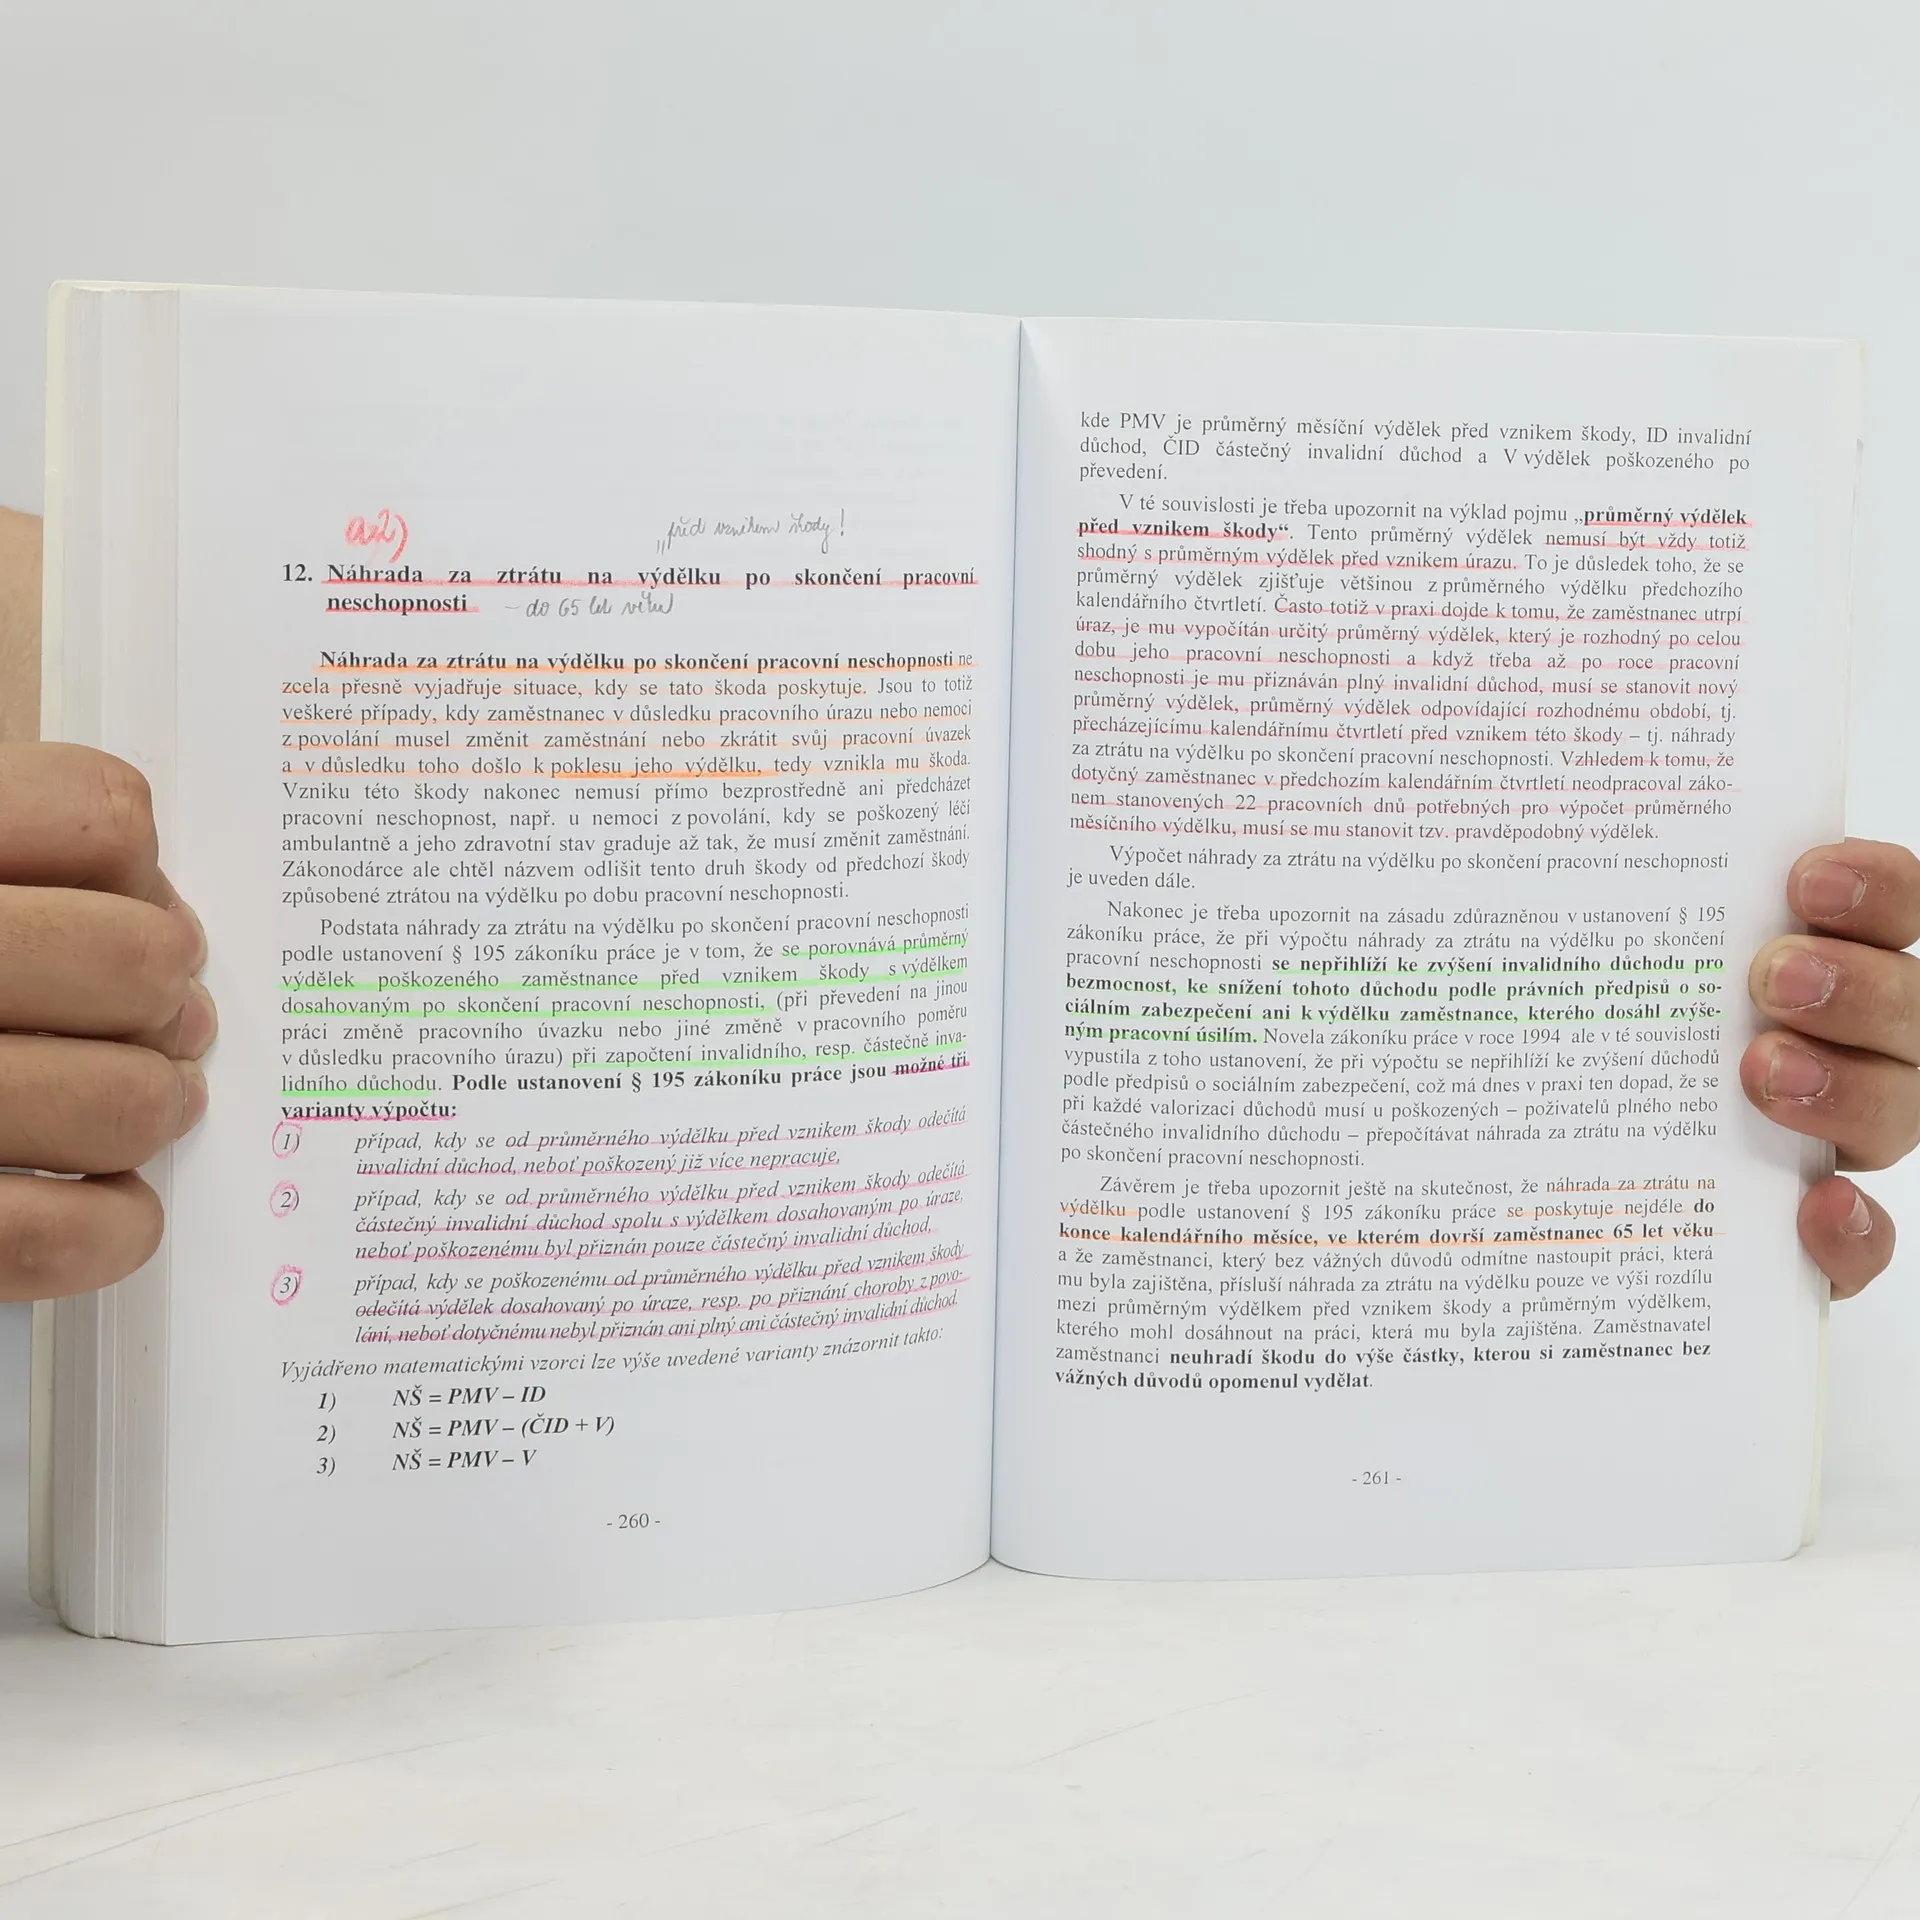 a2)
„před vznikem škody!
12. Náhrada za ztrátu na výdělku po skončení pracovní
neschopnosti – do 65 let věku
Náhrada za ztrátu na výdělku po skončení pracovní neschopnosti ne
zcela přesně vyjadřuje situace, kdy se tato škoda poskytuje. Jsou to totiž
veškeré případy, kdy zaměstnanec v důsledku pracovního úrazu nebo nemoci
z povolání musel změnit zaměstnání nebo zkrátit svůj pracovní úvazek
a v důsledku toho došlo k poklesu jeho výdělku, tedy vznikla mu škoda.
Vzniku této škody nakonec nemusí přímo bezprostředně ani předcházet
pracovní neschopnost, např. u nemoci z povolání, kdy se poškozený léčí
ambulantně a jeho zdravotní stav graduje až tak, že musí změnit zaměstnání.
Zákonodárce ale chtěl názvem odlišit tento druh škody od předchozí škody
způsobené ztrátou na výdělku po dobu pracovní neschopnosti.
Podstata náhrady za ztrátu na výdělku po skončení pracovní neschopnosti
podle ustanovení § 195 zákoníku práce je v tom, že se porovnává průměrný
výdělek poškozeného zaměstnance před vznikem škody s výdělkem
dosahovaným po skončení pracovní neschopnosti, (při převedení na jinou
práci změně pracovního úvazku nebo jiné změně v pracovního poměru
v důsledku pracovního úrazu) při započtení invalidního, resp. částečně inva-
lidního důchodu. Podle ustanovení § 195 zákoníku práce jsou možné tři
varianty výpočtu:
1) případ, kdy se od průměrného výdělku před vznikem škody odečítá
invalidní důchod, neboť poškozený již více nepracuje,
2) případ, kdy se od průměrného výdělku před vznikem škody odečítá
částečný invalidní důchod spolu s výdělkem dosahovaným po úraze,
neboť poškozenému byl přiznán pouze částečný invalidní důchod,
3) případ, kdy se poškozenému od průměrného výdělku před vznikem škody
odečítá výdělek dosahovaný po úraze, resp. po přiznání choroby z povo-
lání, neboť dotyčnému nebyl přiznán ani plný ani částečný invalidní důchod.
Vyjádřeno matematickými vzorci lze výše uvedené varianty znázornit takto:
1) NŠ = PMV – ID
2) NŠ = PMV – (ČID + V)
3) NŠ = PMV – V
- 260 -
kde PMV je průměrný měsíční výdělek před vznikem škody, ID invalidní
důchod, ČID částečný invalidní důchod a V výdělek poškozeného po
převedení.
V té souvislosti je třeba upozornit na výklad pojmu „průměrný výdělek
před vznikem škody“. Tento průměrný výdělek nemusí být vždy totiž
shodný s průměrným výdělek před vznikem úrazu. To je důsledek toho, že se
průměrný výdělek zjišťuje většinou z průměrného výdělku předchozího
kalendářního čtvrtletí. Často totiž v praxi dojde k tomu, že zaměstnanec utrpí
úraz, je mu vypočítán určitý průměrný výdělek, který je rozhodný po celou
dobu jeho pracovní neschopnosti a když třeba až po roce pracovní
neschopnosti je mu přiznáván plný invalidní důchod, musí se stanovit nový
průměrný výdělek, průměrný výdělek odpovídající rozhodnému období, tj.
přecházejícímu kalendářnímu čtvrtletí před vznikem této škody – tj. náhrady
za ztrátu na výdělku po skončení pracovní neschopnosti. Vzhledem k tomu, že
dotyčný zaměstnanec v předchozím kalendářním čtvrtletí neodpracoval záko-
nem stanovených 22 pracovních dnů potřebných pro výpočet průměrného
měsíčního výdělku, musí se mu stanovit tzv. pravděpodobný výdělek.
Výpočet náhrady za ztrátu na výdělku po skončení pracovní neschopnosti
je uveden dále.
Nakonec je třeba upozornit na zásadu zdůrazněnou v ustanovení § 195
zákoníku práce, že při výpočtu náhrady za ztrátu na výdělku po skončení
pracovní neschopnosti se nepřihlíží ke zvýšení invalidního důchodu pro
bezmocnost, ke snížení tohoto důchodu podle právních předpisů o so-
ciálním zabezpečení ani k výdělku zaměstnance, kterého dosáhl zvýše-
ným pracovní úsilím. Novela zákoníku práce v roce 1994 ale v té souvislosti
vypustila z toho ustanovení, že při výpočtu se nepřihlíží ke zvýšení důchodů
podle předpisů o sociálním zabezpečení, což má dnes v praxi ten dopad, že se
při každé valorizaci důchodů musí u poškozených – poživatelů plného nebo
částečného invalidního důchodu – přepočítávat náhrada za ztrátu na výdělku
po skončení pracovní neschopnosti.
Závěrem je třeba upozornit ještě na skutečnost, že náhrada za ztrátu na
výdělku podle ustanovení § 195 zákoníku práce se poskytuje nejdéle do
konce kalendářního měsíce, ve kterém dovrší zaměstnanec 65 let věku
a že zaměstnanci, který bez vážných důvodů odmítne nastoupit práci, která
mu byla zajištěna, přísluší náhrada za ztrátu na výdělku pouze ve výši rozdílu
mezi průměrným výdělkem před vznikem škody a průměrným výdělkem,
kterého mohl dosáhnout na práci, která mu byla zajištěna. Zaměstnavatel
zaměstnanci neuhradí škodu do výše částky, kterou si zaměstnanec bez
vážných důvodů opomenul vydělat.
- 261 -